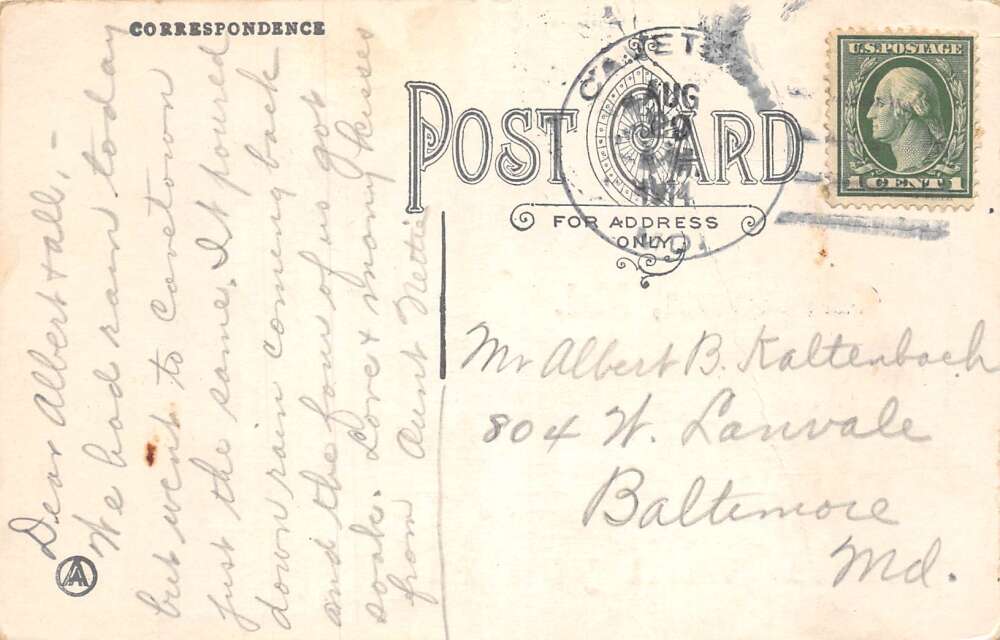 CORRESPONDENCE
Dear Albert & all,-
We had rain today
but went to Cavetown
just the same. It poured
down rain coming back
and the four of us got
soak. Love & many kisses
from Aunt Nettie
POST CARD
FOR ADDRESS
ONLY
AUG
29
1914
MD.
U.S. POSTAGE
1 CENT 1
Mr Albert B. Kaltenbach
804 W. Lanvale
Baltimore
Md.